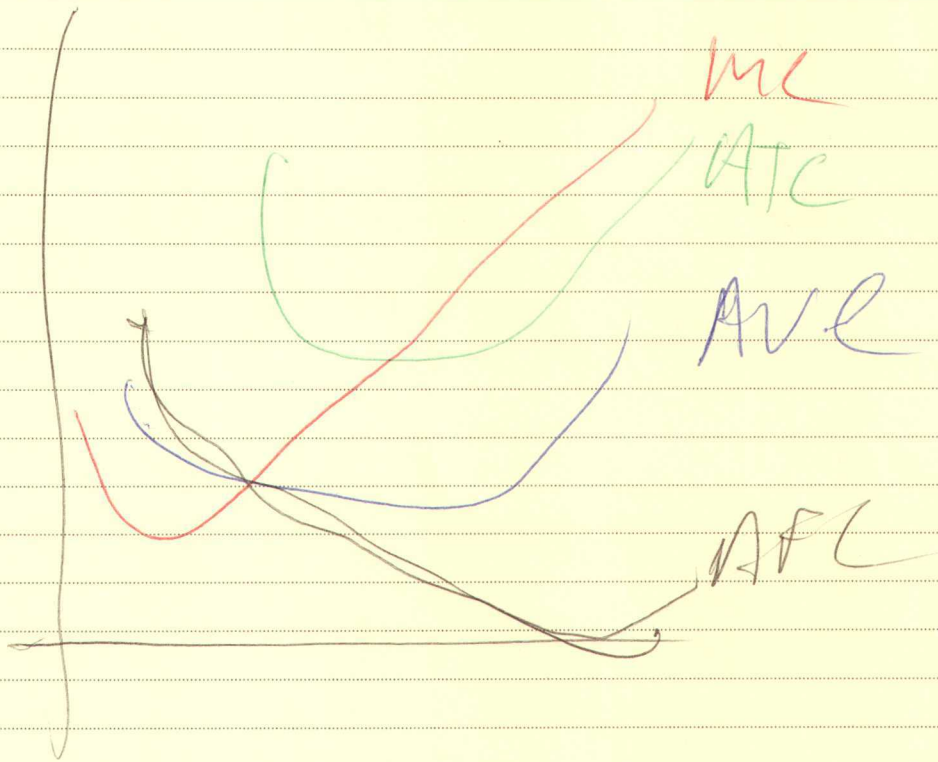 MC
ATC
AVC
AFC